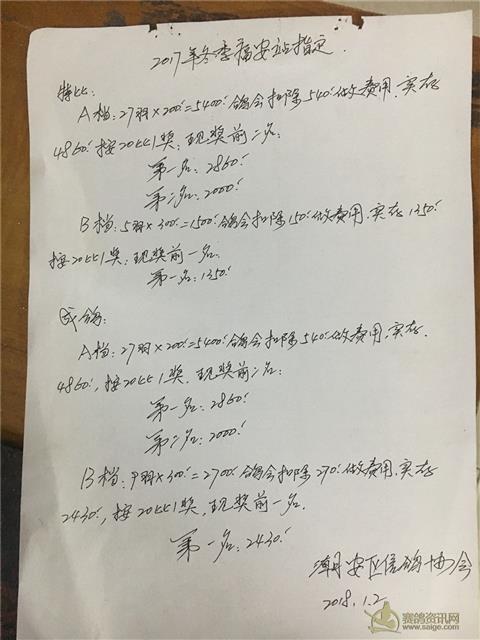 2017年冬季福安站指定.
特比:
A档:27羽×200=5400鸽会扣除540做费用.实存
4860,按20比1奖,现奖前二名:
第一名:2860
第二名:2000
B档:5羽×300=1500鸽会扣除150做费用,实存1350
按20比1奖,现奖前一名:
第一名:1350
成鸽:
A档:27羽×200=5400鸽会扣除540做费用,实存
4860,按20比1奖,现奖前二名:
第一名:2860
第二名:2000
B档:9羽×300=2700鸽会扣除270做费用,实存
2430,按20比1奖,现奖前一名.
第一名:2430
潮安区信鸽协会
2018.1.2
赛鸽资讯网
www.saige.com